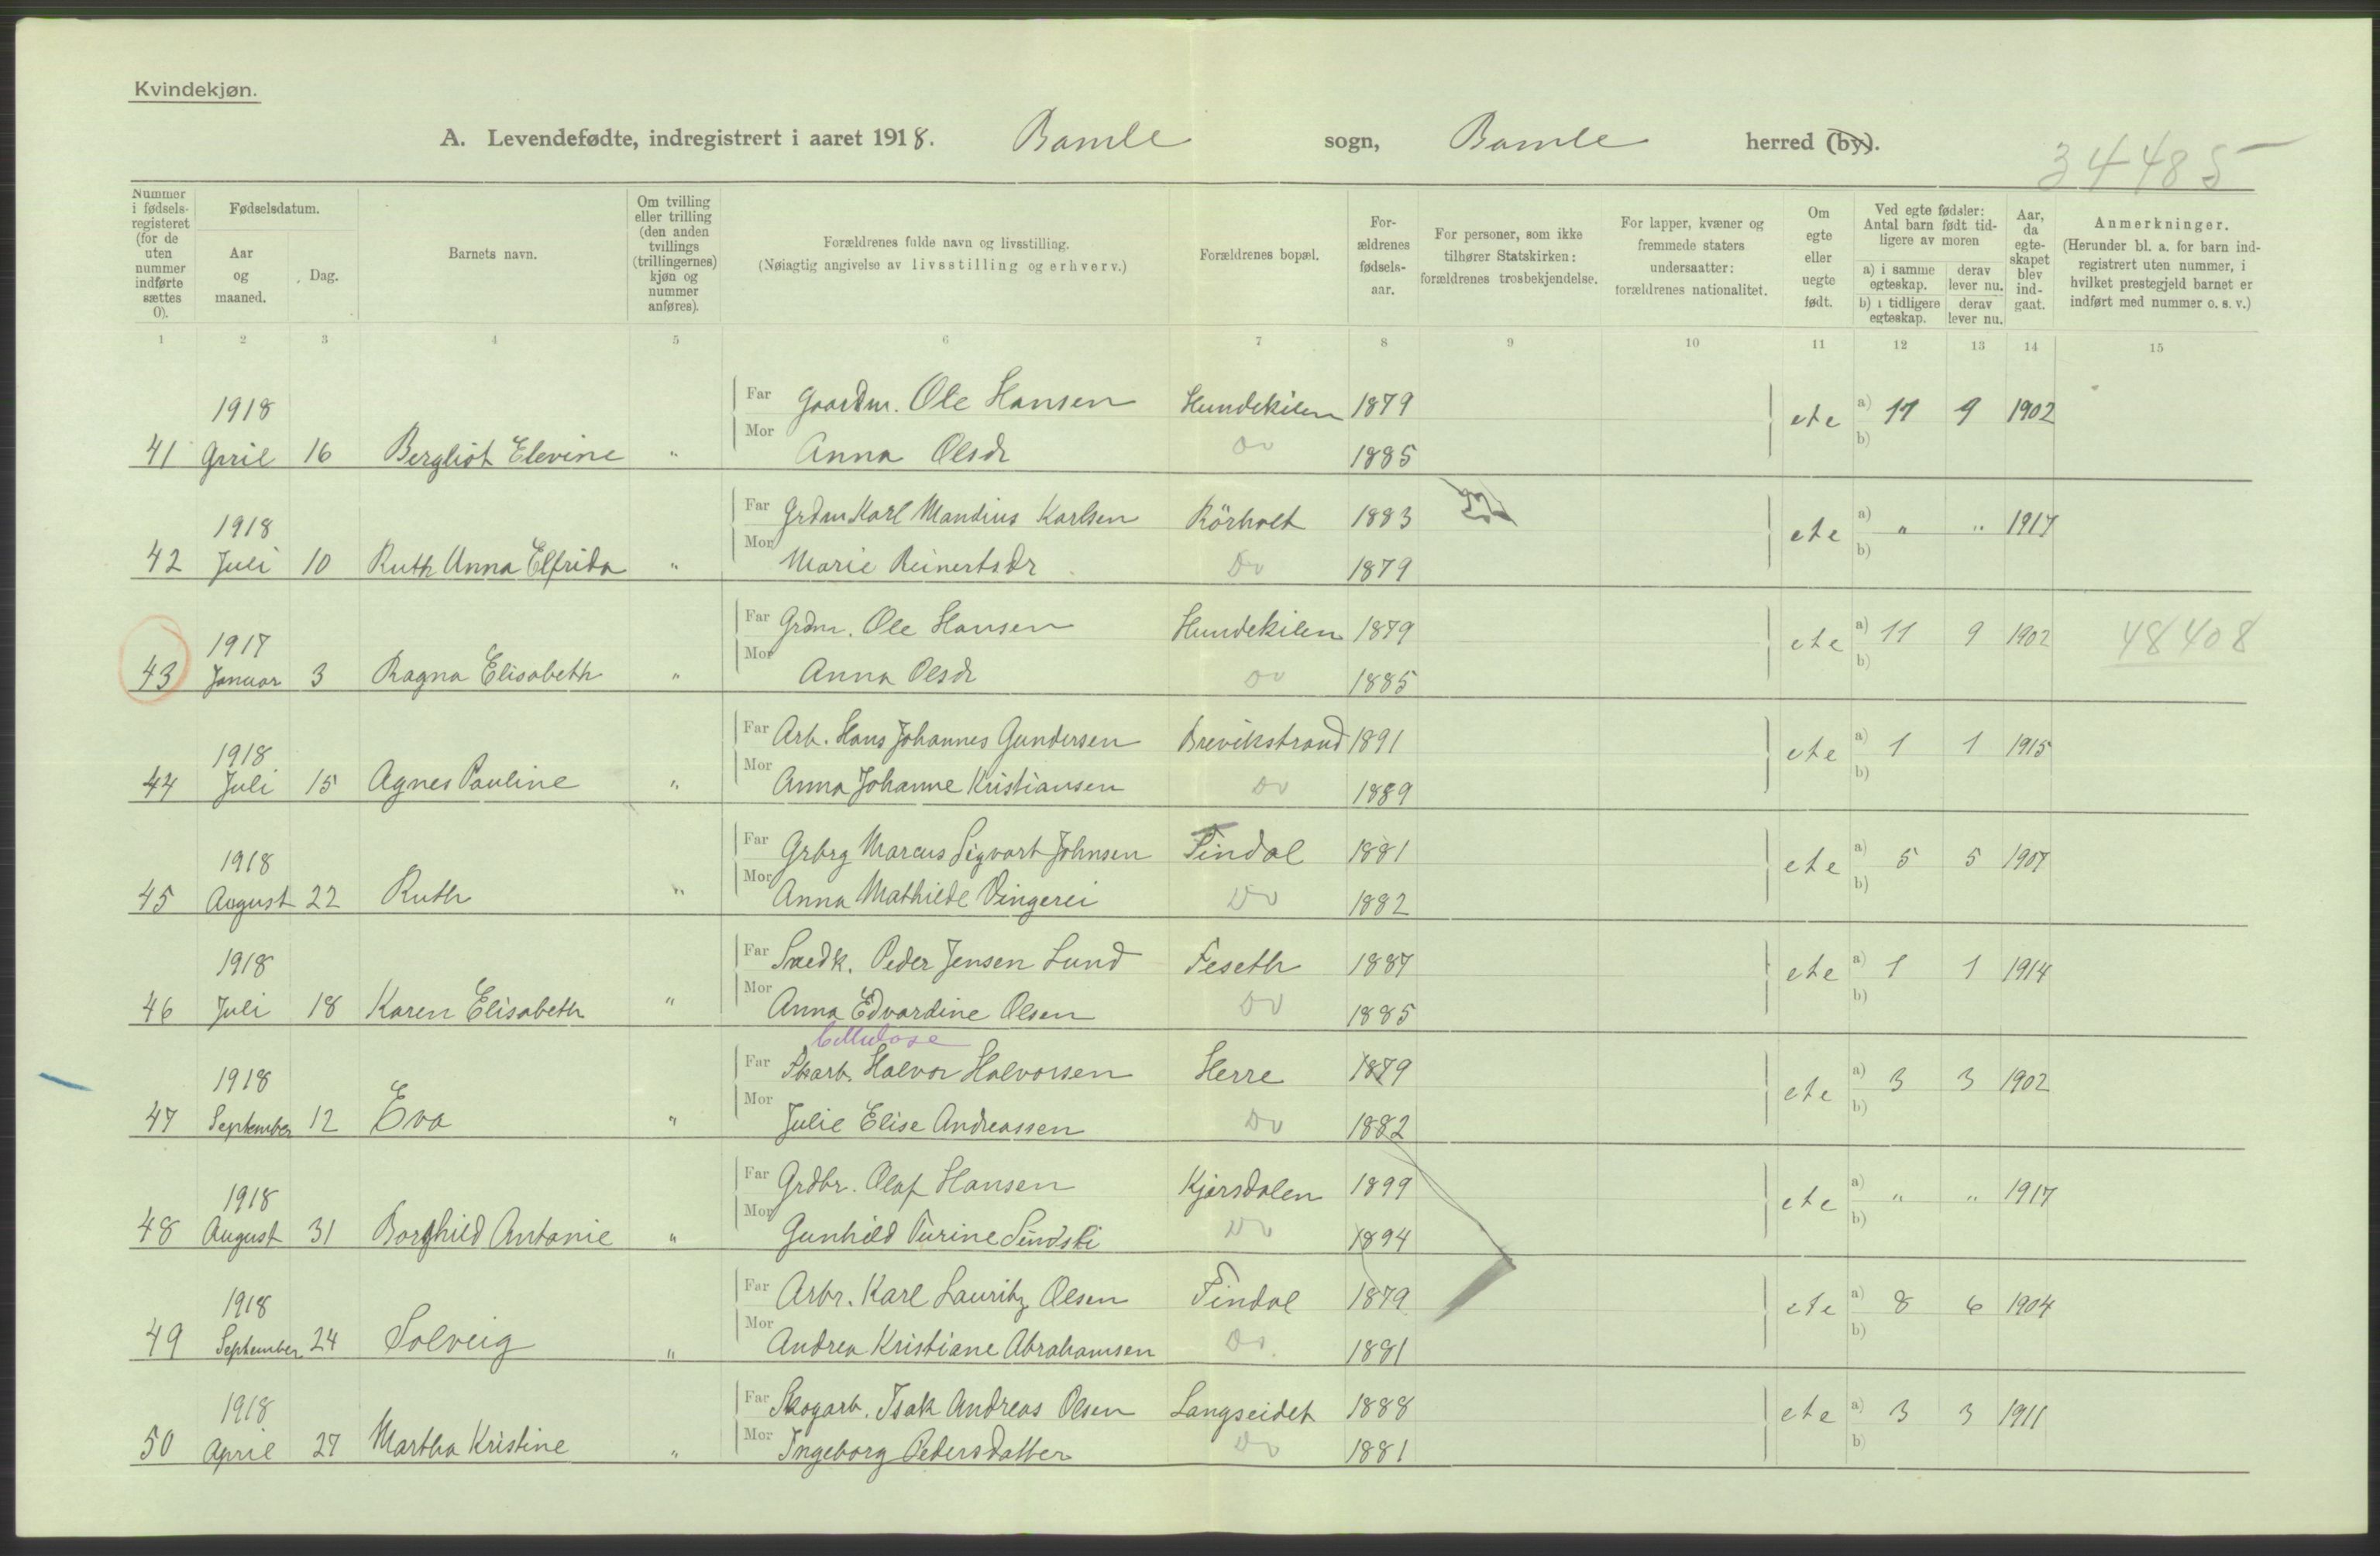 Kvindekjøn.
A. Levendefødte, indregistrert i aaret 1918. Bamle sogn, Bamle herred (by).
34485
Nummer i fødselsregisteret (for de uten nummer indførte sættes 0).
Fødselsdatum.
Aar og maaned.
Dag.
Barnets navn.
Om tvilling eller trilling (den anden tvillings (trillingernes) kjøn og nummer anføres).
Forældrenes fulde navn og livsstilling.
(Nøiagtig angivelse av livsstilling og erhverv.)
Forældrenes bopæl.
Forældrenes fødselsaar.
For personer, som ikke tilhører Statskirken: forældrenes trosbekjendelse.
For lapper, kvæner og fremmede staters undersaatter: forældrenes nationalitet.
Om egte eller uegte født.
Ved egte fødsler: Antal barn født tidligere av moren
a) i samme egteskap. derav lever nu.
b) i tidligere egteskap. derav lever nu.
Aar, da egteskapet blev indgaat.
Anmerkninger.
(Herunder bl. a. for barn indregistrert uten nummer, i hvilket prestegjeld barnet er indført med nummer o. s. v.)
1 2 3 4 5 6 7 8 9 10 11 12 13 14 15
1918 Far Gaardm. Ole Hansen Hundekilen 1879 ekte a) 11 9 1902
41 April 16 Bergliot Elevine " Mor Anna Olsdr Do 1885 b)
1918 Far Grdm Karl Mandius Karlsen Rörholt 1883 ekte a) " " 1917
42 Juli 10 Ruth Anna Elfrida " Mor Marie Reinertsdr Do 1879 b)
1917 Far Grdm. Ole Hansen Hundekilen 1879 ekte a) 11 9 1902 48408
43 Januar 3 Ragna Elisabeth " Mor Anna Olsdr Do 1885 b)
1918 Far Arb. Hans Johannes Gundersen Brevikstrand 1891 ekte a) 1 1 1915
44 Juli 15 Agnes Pauline " Mor Anna Johanne Kristiansen Do 1889 b)
1918 Far Grbrg Marcus Sigvart Johnsen Findal 1881 ekte a) 5 5 1907
45 August 22 Ruth " Mor Anna Mathilde Vingerei Do 1882 b)
1918 Far Snedk. Peder Jensen Lund Feseth 1887 ekte a) 1 1 1914
46 Juli 18 Karen Elisabeth " Mor Anna Edvardine Olsen Do 1885 b)
Cellulose
1918 Far Halvor Halvorsen Herre 1879 ekte a) 3 3 1902
47 September 12 Eva " Mor Julie Elise Andreassen Do 1882 b)
1918 Far Grdbr. Olaf Hansen Kjørsdalen 1899 ekte a) " " 1917
48 August 31 Borghild Antonie " Mor Gunhild Turine Do 1894 b)
1918 Far Arbr. Karl Lauritz Olsen Findal 1879 ekte a) 8 6 1904
49 September 24 Solveig " Mor Andrea Kristiane Abrahamsen Do 1881 b)
1918 Far Skogarb. Isak Andreas Olsen Langseidet 1888 ekte a) 3 3 1911
50 April 27 Martha Kristine " Mor Ingeborg Pedersdatter Do 1881 b)